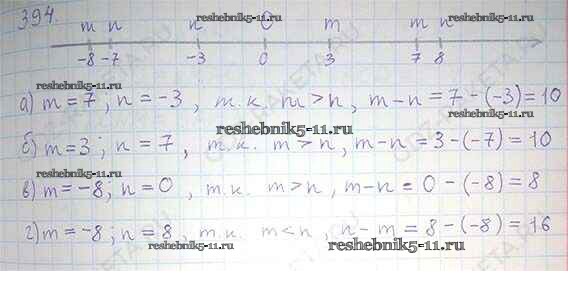 394.
reshebnik5-11.ru
m n n 0 m m n
-8 -7 -3 0 3 7 8
reshebnik5-11.ru
а) m = 7; n = -3, т.к. m > n, m - n = 7 - (-3) = 10
reshebnik5-11.ru
б) m = 3; n = 7, т.к. m > n, m - n = 3 - (-7) = 10
reshebnik5-11.ru
в) m = -8; n = 0, т.к. m > n, m - n = 0 - (-8) = 8
г) m = -8; n = 8, т.к. m < n, n - m = 8 - (-8) = 16
reshebnik5-11.ru reshebnik5-11.ru